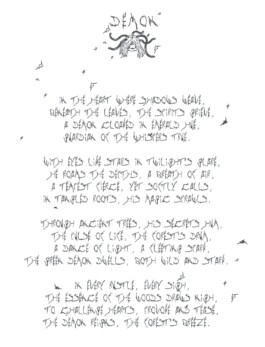 DEMON
IN THE HEART WHERE SHADOWS WEAVE,
BENEATH THE LEAVES, THE SPIRITS GRIEVE,
A DEMON CLOAKED IN EMERALD HUE,
GUARDIAN OF THE WHISPERS TRUE.
WITH EYES LIKE STARS IN TWILIGHT'S GLARE,
HE ROAMS THE DEPTHS, A BREATH OF AIR,
A TEMPEST FIERCE, YET SOFTLY CALLS,
IN TANGLED ROOTS, HIS MAGIC SPRAWLS.
THROUGH ANCIENT TREES, HIS SECRETS HUM,
THE PULSE OF LIFE, THE FOREST'S DRUM,
A DANCE OF LIGHT, A FLEETING SPARK,
THE GREEN DEMON DWELLS, BOTH WILD AND STARK.
IN EVERY RUSTLE, EVERY SIGH,
THE ESSENCE OF THE WOODS DRAWS NIGH,
TO CHALLENGE HEARTS, PROVOKE AND TEASE,
THE DEMON REIGNS, THE FOREST'S BREEZE.